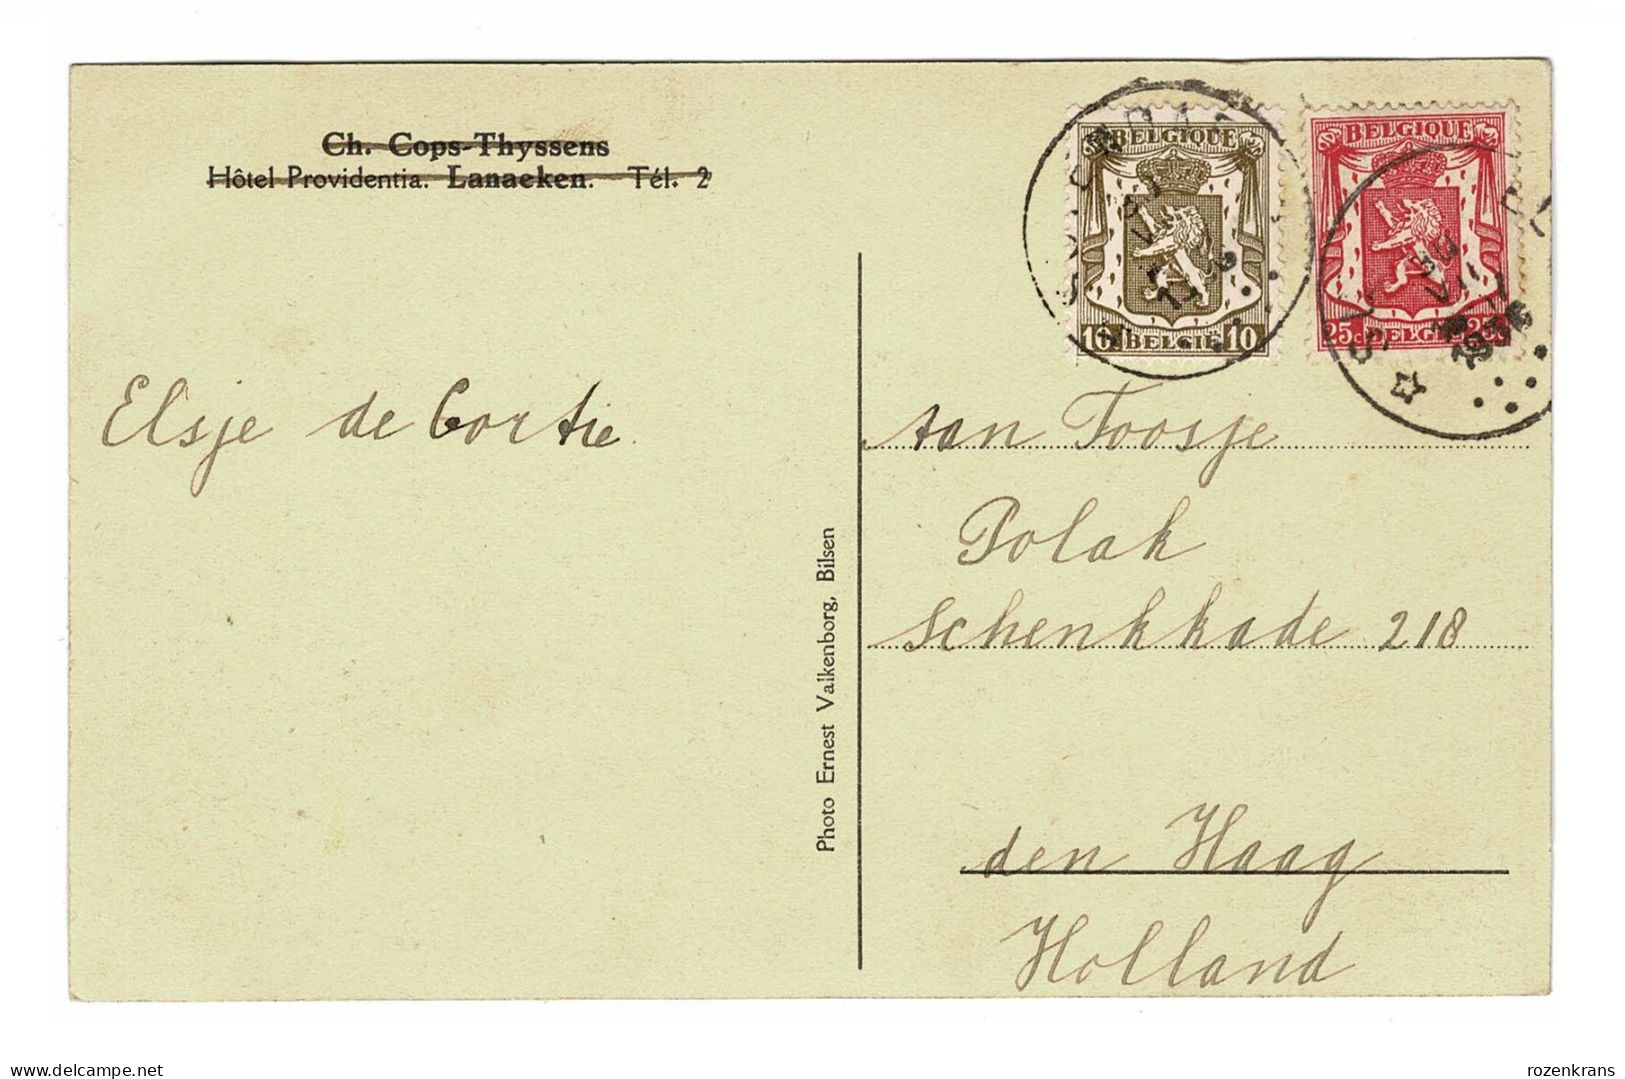 Ch. Cops-Thyssens
Hôtel Providentia. Lanaeken. Tél. 2
BELGIQUE
10 BELGIE 10
BELGIQUE
25 BELGIE 25
30
VII
1936
Elsje de Cortie
Aan Toosje
Polak
Schenkkade 218
den Haag
Holland
Photo Ernest Valkenborg, Bilsen
rozenkrans